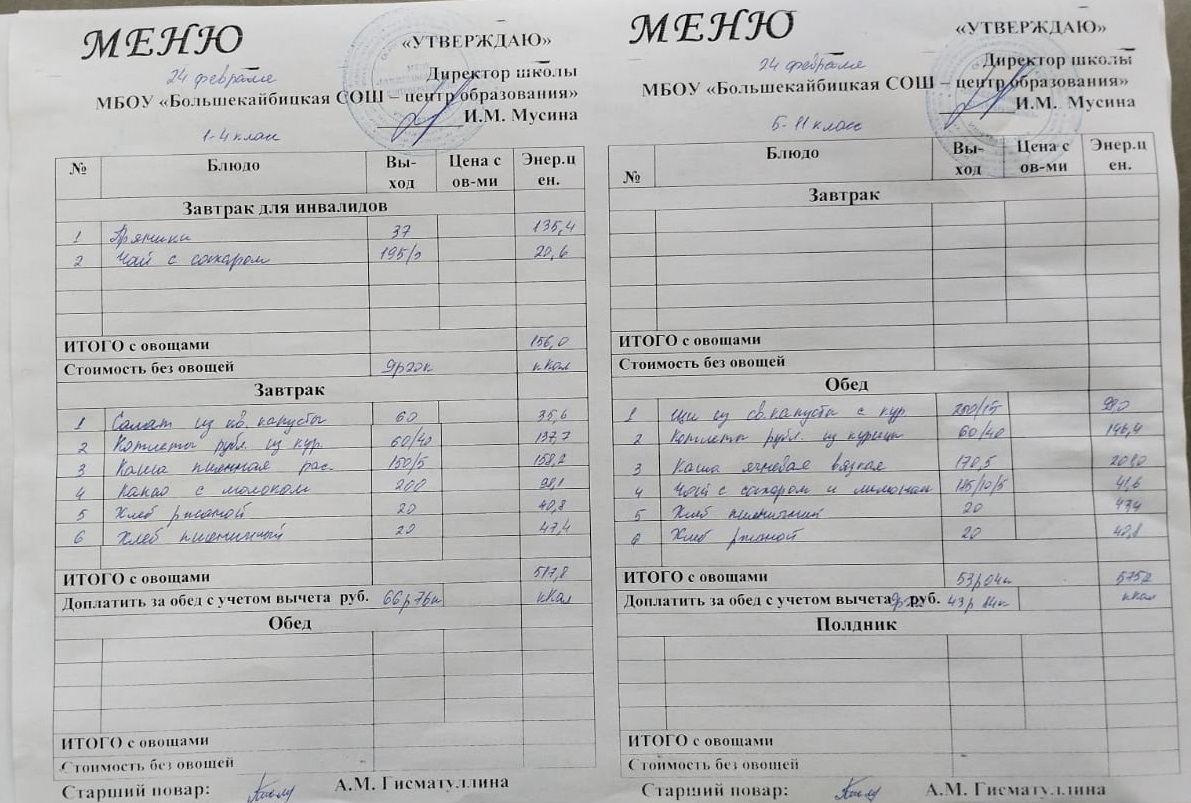 МЕНЮ
«УТВЕРЖДАЮ»
24 февраля
Директор школы
МБОУ «Большекайбицкая СОШ – центр образования»
И.М. Мусина
1-4 класс
№ Блюдо Вы-ход Цена с ов-ми Энер.ц ен.
Завтрак для инвалидов
1 Пряники 37 135,4
2 Чай с сахаром 195/5 20,6
ИТОГО с овощами 156,0
Стоимость без овощей 9р20к кКал
Завтрак
1 Салат из кв. капусты 60 35,6
2 Котлеты рубл. из кур. 60/40 137,7
3 Каша пшенная рас. 150/5 158,2
4 Какао с молоком 200 98,1
5 Хлеб ржаной 20 40,8
6 Хлеб пшеничный 20 47,4
ИТОГО с овощами 517,8
Доплатить за обед с учетом вычета руб. 66р76к кКал
Обед
ИТОГО с овощами
Стоимость без овощей
Старший повар: А.М. Гисматуллина
МЕНЮ
«УТВЕРЖДАЮ»
24 февраля
Директор школы
МБОУ «Большекайбицкая СОШ – центр образования»
И.М. Мусина
5-11 класс
№ Блюдо Вы-ход Цена с ов-ми Энер.ц ен.
Завтрак
ИТОГО с овощами
Стоимость без овощей
Обед
1 Щи из св.капусты с кур 98,0
2 Котлеты рубл. из курицы 60/40 146,4
3 Каша ячневая вязкая 170,5 201,0
4 Чай с сахаром и лимоном 185/10/5 41,6
5 Хлеб пшеничный 20 47,4
6 Хлеб ржаной 20 40,8
ИТОГО с овощами 53р04к 575,2
Доплатить за обед с учетом вычета руб. 43р 84к кКал
Полдник
ИТОГО с овощами
Стоимость без овощей
Старший повар: А.М. Гисматуллина